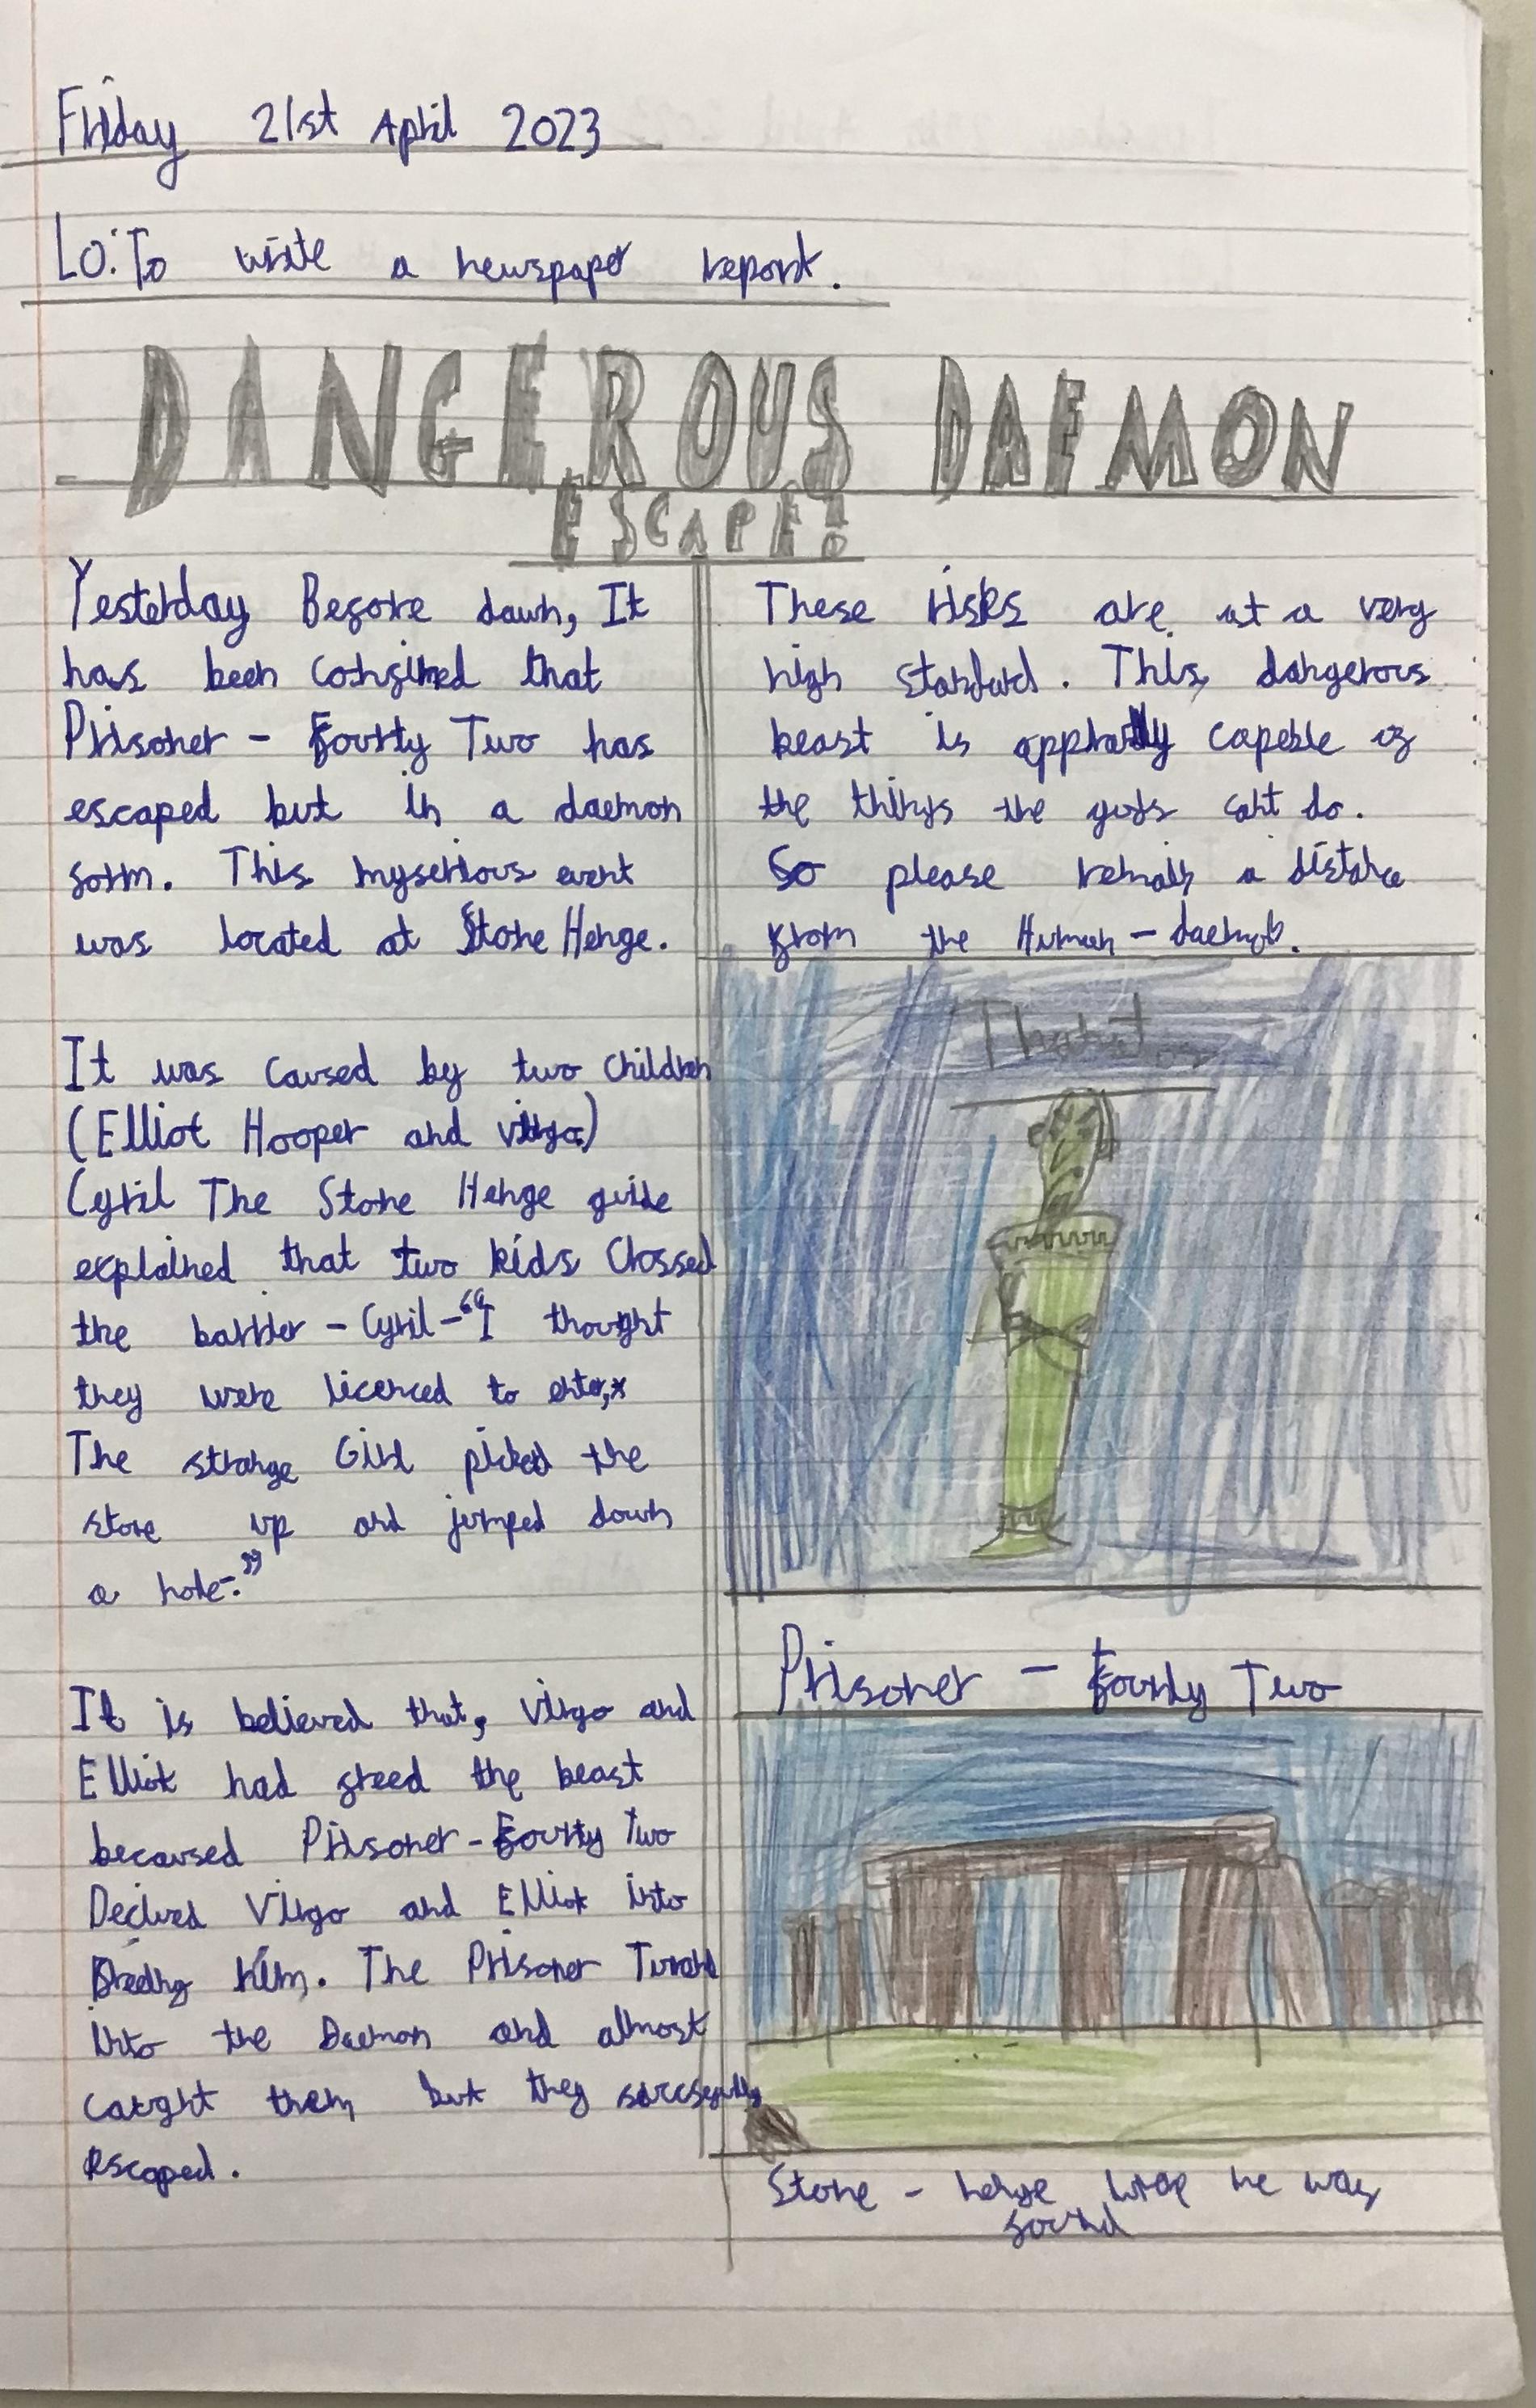 Friday 21st April 2023
LO: To write a newspaper report.
DANGEROUS DAEMON
ESCAPE!
Yesterday Before dawn, It
has been confirmed that
Prisoner - Fourty Two has
escaped but in a daemon
form. This myserious event
was located at Stone Henge.
It was caused by two children
(Elliot Hooper and Virgo)
Cyril The Stone Henge guide
explained that two kids Crossed
the barrier - Cyril - “I thought
they were licenced to enter,*
The strange Girl picked the
stone up and jumped down
a hole-.”
It is believed that, Virgo and
Elliot had freed the beast
becaused Prisoner - Fourty Two
Decived Virgo and Elliot into
freeing him. The Prisoner Turned
into the Daemon and almost
caught them but they succsefully
escaped.
These risks are at a very
high standard. This dangerous
beast is apprantly capeble of
the things the gods cant do.
So please remain a distance
from the Human - daemon.
Thanatos
Prisoner - Fourty Two
Stone - henge were he was
found